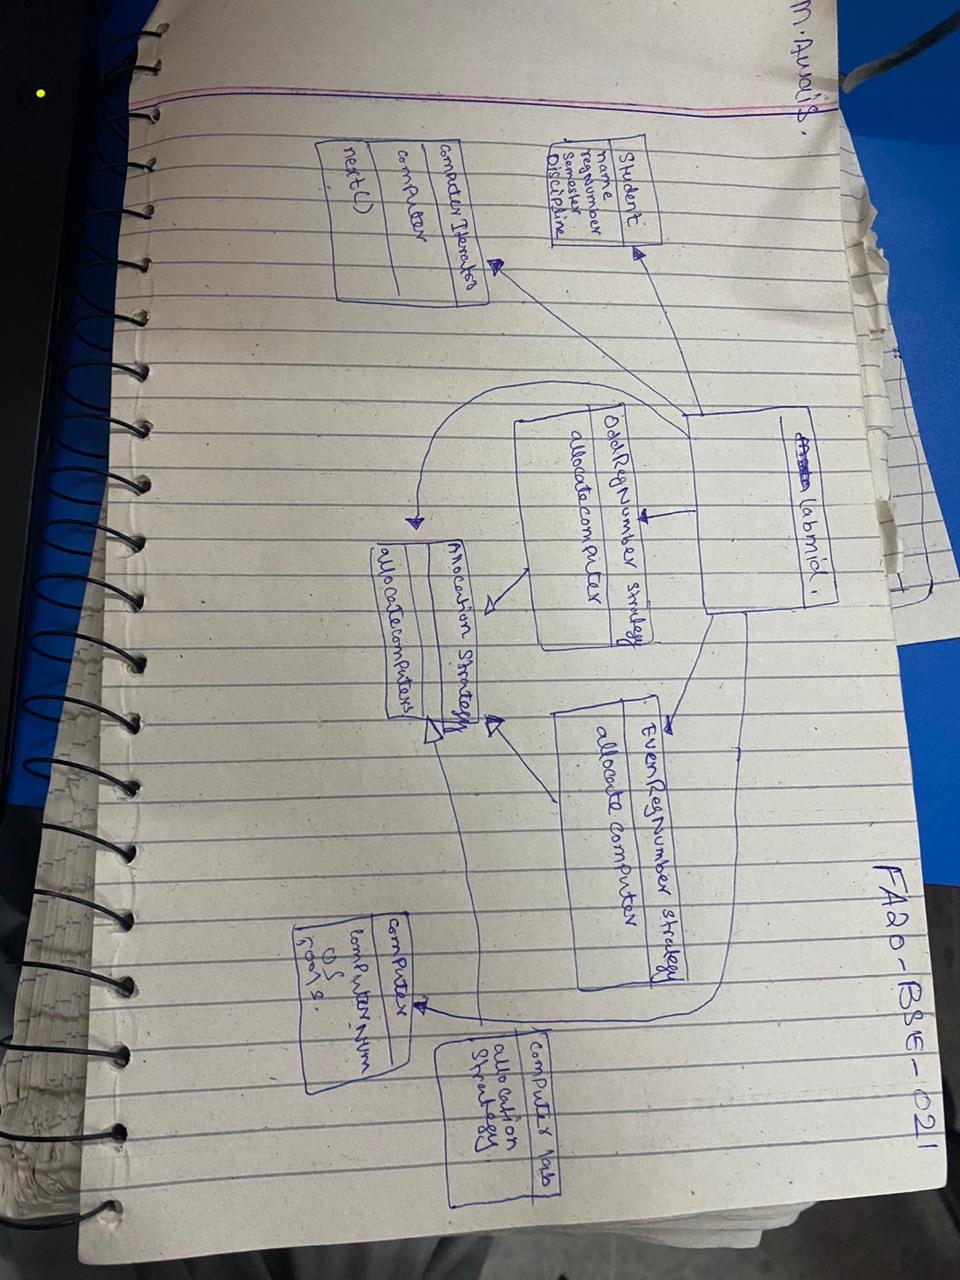 FA20-BSE-021
M.Awais.
labmid.
Student
name
regNumber
Semester
Discipline
OddRegNumber strategy
allocatecomputer
EvenRegNumber strategy
allocate computer
computer lab
allocation
strategy
computerIterator
computer
next()
Allocation Strategy
allocatecomputers
computer
computerNum
OS
Tools.